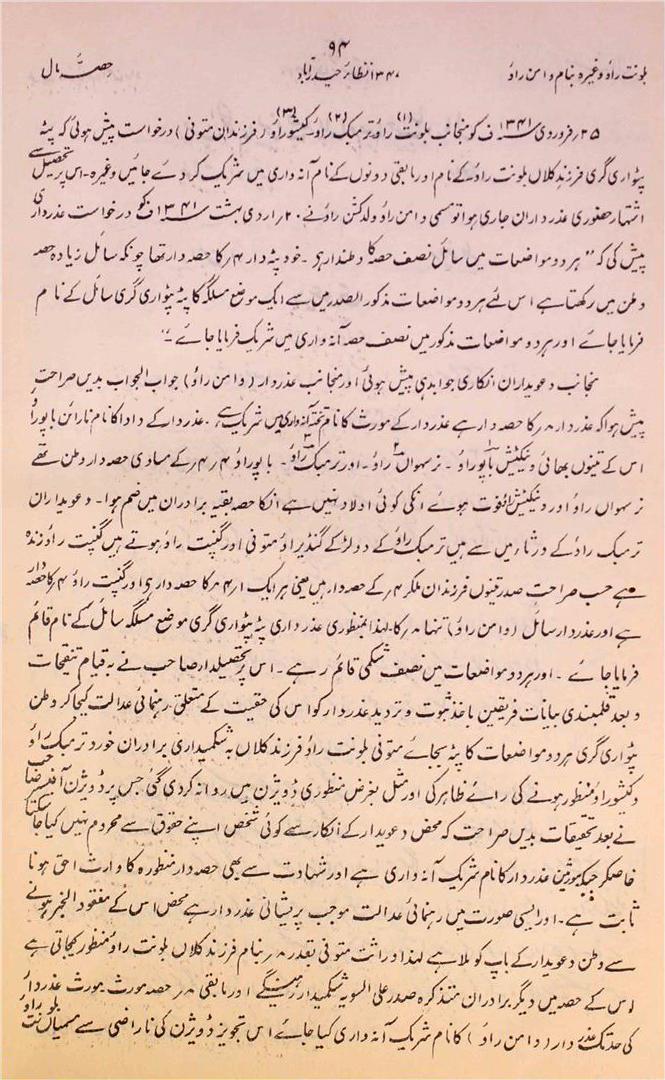 ۹۴
بلونت راؤ وغیرہ بنام وامن راؤ
۱۳۴۷ نظائر حیدرآباد
حصہ مال
۲۵ فروردی ۱۳۴۱ ف کو منجانب بلونت راؤ (۱) و ترمبک راؤ (۲) و کیشوراؤ (۳) (فرزندان متوفی) درخواست پیش ہوئی کہ پٹہ
پٹواری گری فرزند کلاں بلونت راؤ کے نام اور مابقی دونوں کے نام آنہ داری میں شریک کردے جائیں وغیرہ۔ اس پر تحصیل سے
اشتہار حضوری عذرداران جاری ہوا تو مسمی وامن راؤ ولد کشن راؤ نے ۲۰ اردی بہشت ۱۳۴۱ ف کو درخواست عذرداری
پیش کی کہ "ہر دو مواضعات میں سائل نصف حصہ کا وطندار ہے۔ خود پٹہ دار ۴؍ کا حصہ دار تھا چونکہ سائل زیادہ حصہ
وطن میں رکھتا ہے اس لئے ہر دو مواضعات مذکور الصدر میں سے ایک موضع مسلگہ کا پٹہ پٹواری گری سائل کے نام
فرمایا جائے اور ہر دو مواضعات مذکور میں نصف حصہ آنہ واری میں شریک فرمایا جائے۔"
منجانب دعویداران انکاری جوابدہی پیش ہوئی اور منجانب عذردار (وامن راؤ) جواب الجواب بدیں صراحت
پیش ہوا کہ عذردار ۸؍ کا حصہ دار ہے عذردار کے مورث کا نام تختہ آنہ واری میں شریک ہے۔ عذردار کے دادا کا نام نارائن باپوراؤ
اس کے تینوں بھائی ونکٹیش باپوراؤ۔ نرسہواں ۲ راؤ۔ اور ترمبک ۳ راؤ۔ باپوراؤ ۴؍ ۴؍ کے مساوی حصہ دار وطن تھے
نرسہواں راؤ اور ونکٹیش لافوت ہوے انکی کوئی اولاد نہیں ہے انکا حصہ بقیہ برادران میں ضم ہوا۔ دعویداران
ترمبک راؤ کے ورثاء میں سے ہیں ترمبک راؤ کے دو لڑکے گنڈیراؤ متوفی اور گنپت راؤ ہوتے ہیں گنپت راؤ زندہ
ہے حسب صراحت صدر تینوں فرزندان ملکر ۴؍ کے حصہ دار ہیں یعنی ہر ایک ۱؍۴ کا حصہ دار ہے اور گنپت راؤ ۴؍ کا حصہ دار
ہے اور عذردار سائل (وامن راؤ) تنہا ۸؍ کا۔ لہذا بمنظوری عذرداری پٹہ پٹواری گری موضع مسلگہ سائل کے نام قائم
فرمایا جائے۔ اور ہر دو مواضعات میں نصف شکمی قائم رہے۔ اس پر تحصیلدار صاحب نے بہ قیام تنقیحات
و بعد قلمبندی بیانات فریقین باخذ ثبوت و تردید عذردار کو اس کی حقیت کے متعلق رہنمائی عدالت کیجا کر وطن
پٹواری گری ہر دو مواضعات کا پٹہ بجائے متوفی بلونت راؤ فرزند کلاں بہ شکمیداری برادران خورد ترمبک راؤ
و کیشوراؤ منظور ہونے کی رائے ظاہر کی اور مثل بغرض منظوری ڈویژن میں روانہ کردی گئی جس پر ڈویژن آفیسر صاحب
نے بعد تحقیقات بدیں صراحت کہ محض دعویدار کے انکار سے کوئی شخص اپنے حقوق سے محروم نہیں کیا جا سکتا
خاصکر جبکہ مورثین عذردار کا نام شریک آنہ واری ہے اور شہادت سے بھی حصہ دار منظورہ کا وارث احق ہونا
ثابت ہے۔ اور ایسی صورت میں رہنمائی عدالت موجب پریشانی عذردار ہے محض اس کے مفقود الخبر ہونے
سے وطن دعویدار کے باپ کو ملا ہے لہذا وراثت متوفی بقدر ۸؍ بنام فرزند کلاں بلونت راؤ منظور کیجاتی ہے
اس کے حصہ میں دیگر برادران متذکرہ صدر علی السویہ شکمیدار رہینگے اور مابقی ۸؍ حصہ مورث بمورث عذردار
کی حد تک عذردار (وامن راؤ) کا نام شریک آنہ واری کیا جائے اس تجویز ڈویژن کی ناراضی سے مسمیان بلونت راؤ